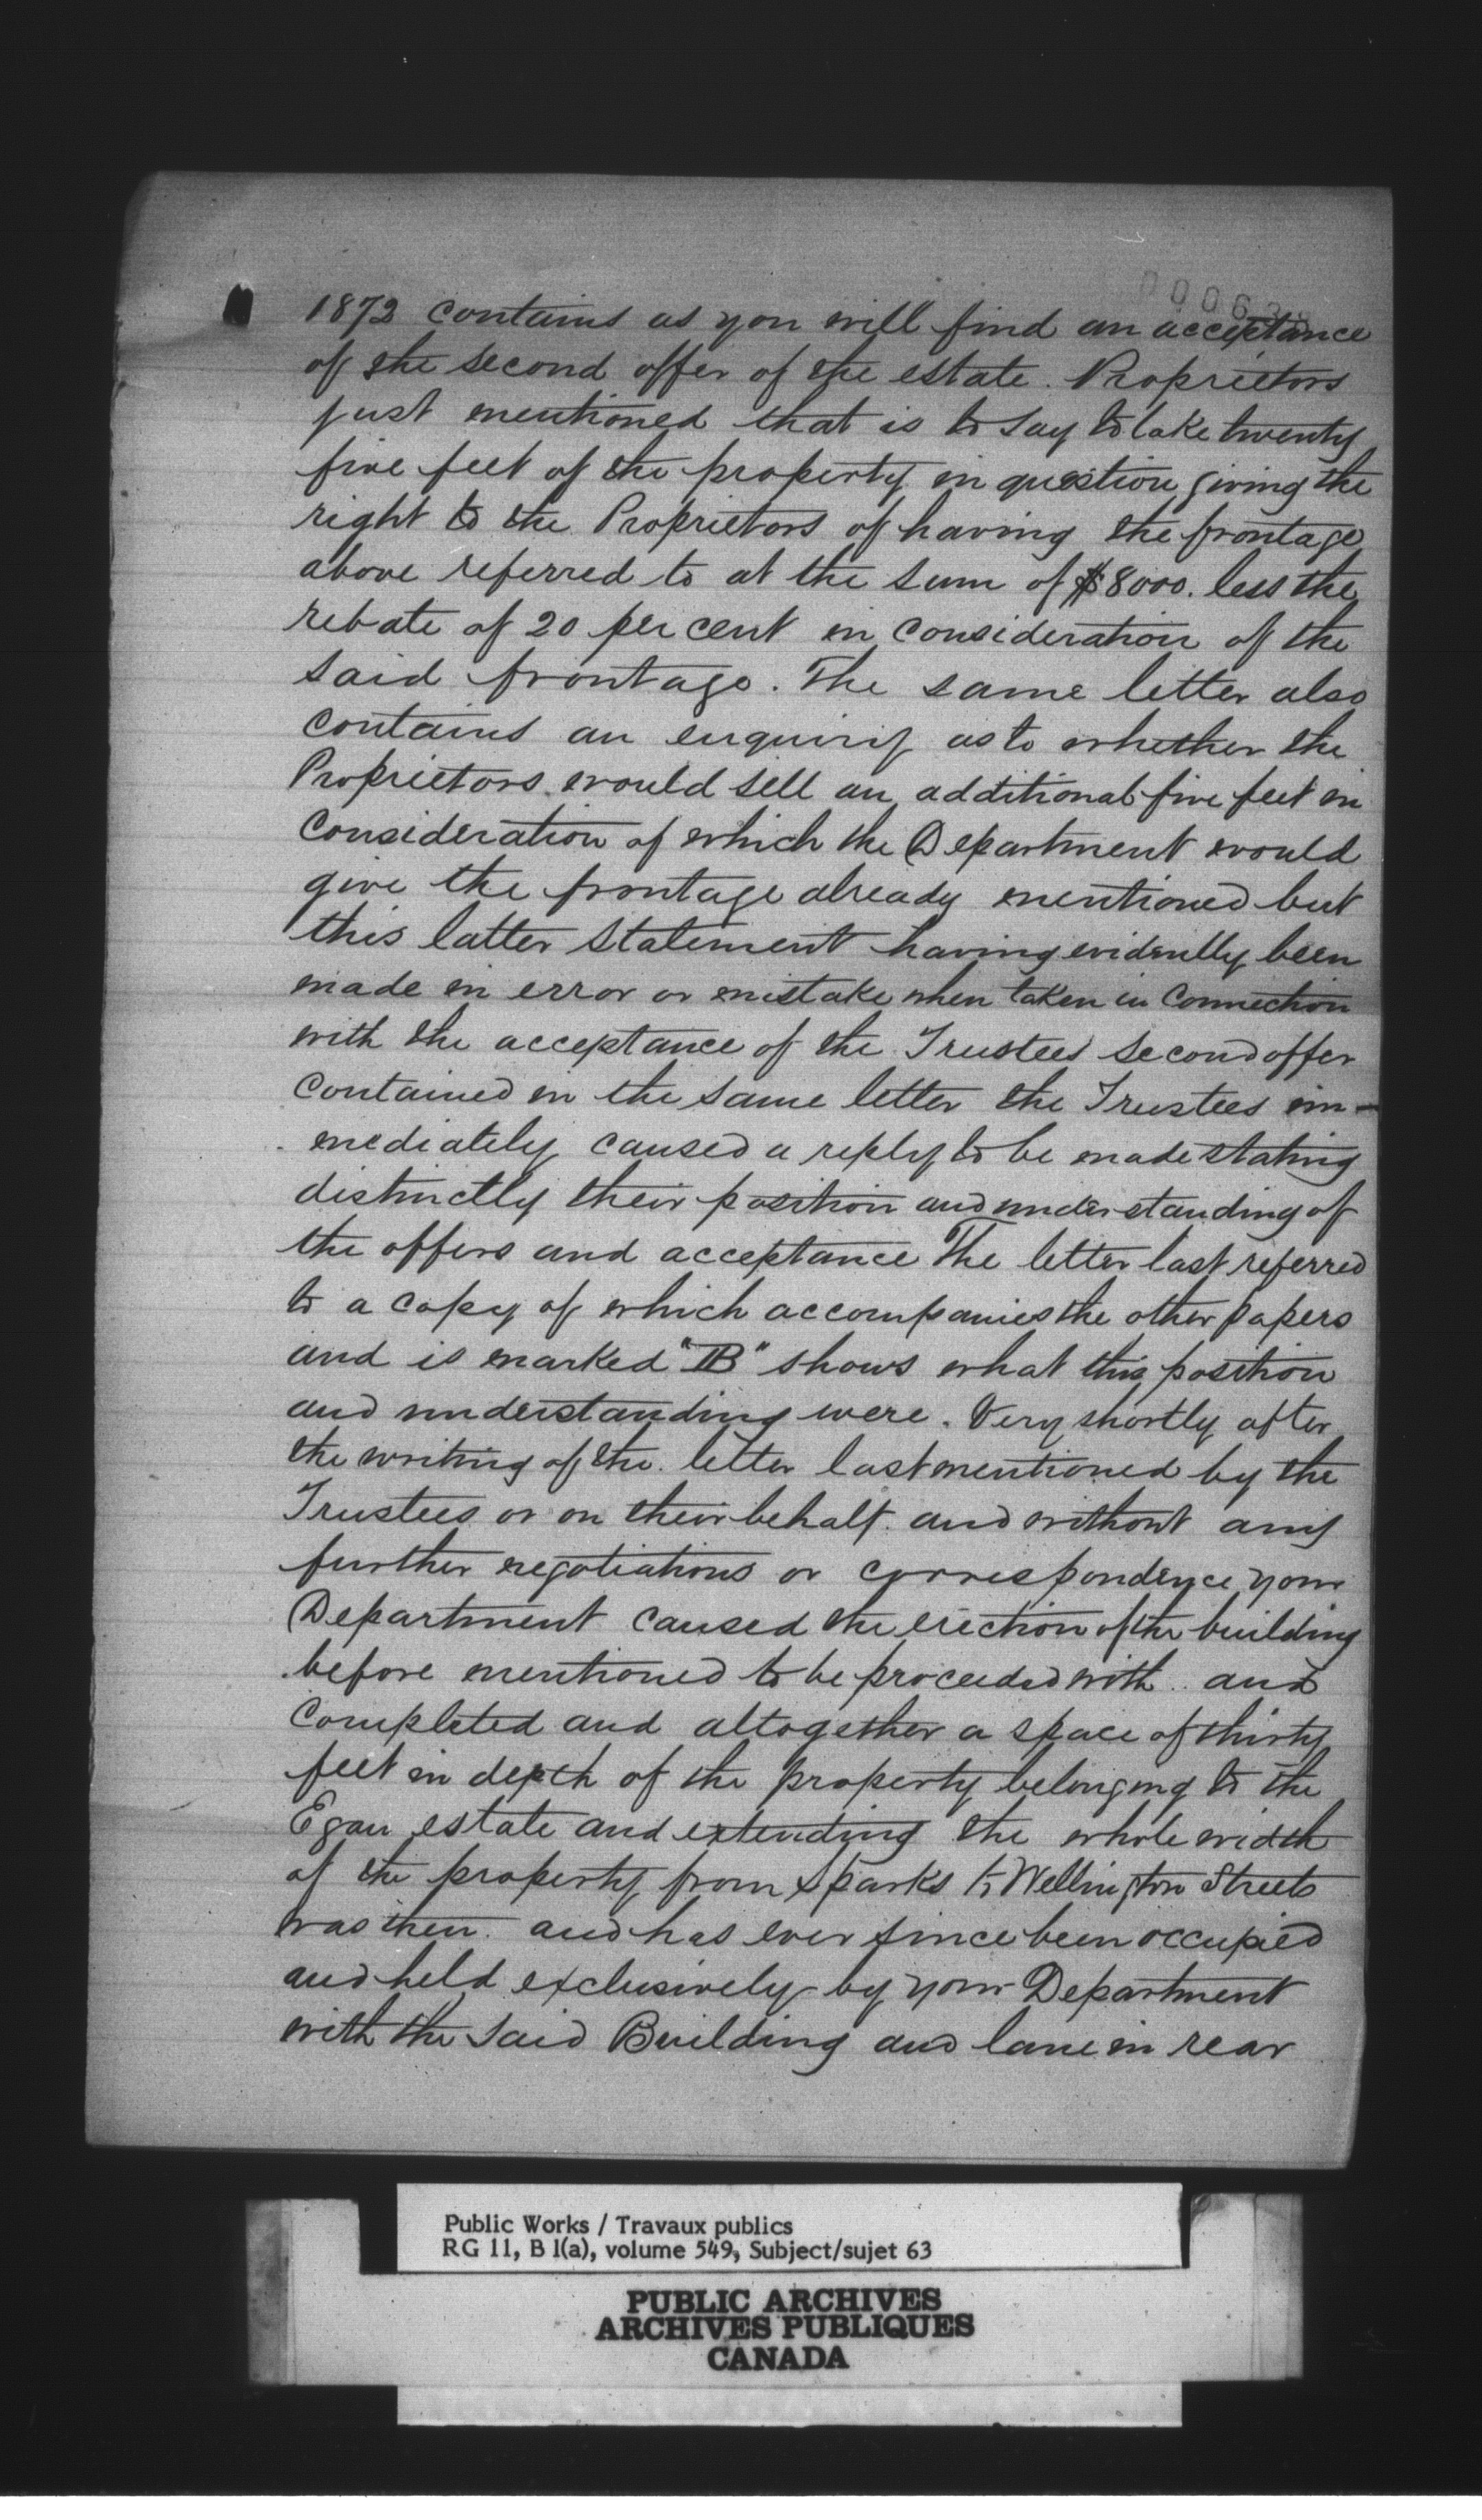 1872 contains as you will find an acceptance
of the second offer of the estate. Proprietors
just mentioned that is to say to take twenty
five feet of the property in question giving the
right to the Proprietors of having the frontage
above referred to at the sum of $8000. less the
rebate of 20 per cent in consideration of the
said frontage. The same letter also
contains an enquiry as to whether the
Proprietors would sell an additional five feet in
consideration of which the Department would
give the frontage already mentioned but
this latter statement having evidently been
made in error or mistake when taken in connection
with the acceptance of the Trustees second offer
contained in the same letter the Trustees im-
mediately caused a reply to be made stating
distinctly their position and understanding of
the offers and acceptance The letter last referred
to a copy of which accompanies the other papers
and is marked "B" shows what this position
and understanding were. Very shortly after
the writing of the letter last mentioned by the
Trustees or on their behalf and without any
further negotiations or correspondence your
Department caused the erection of the building
before mentioned to be proceeded with and
completed and altogether a space of thirty
feet in depth of the property belonging to the
Egan estate and extending the whole width
of the property from Sparks to Wellington Streets
was then and has ever since been occupied
and held exclusively by your Department
with the said Building and lane in rear
Public Works / Travaux publics
RG 11, B 1(a), volume 549, Subject/sujet 63
PUBLIC ARCHIVES
ARCHIVES PUBLIQUES
CANADA